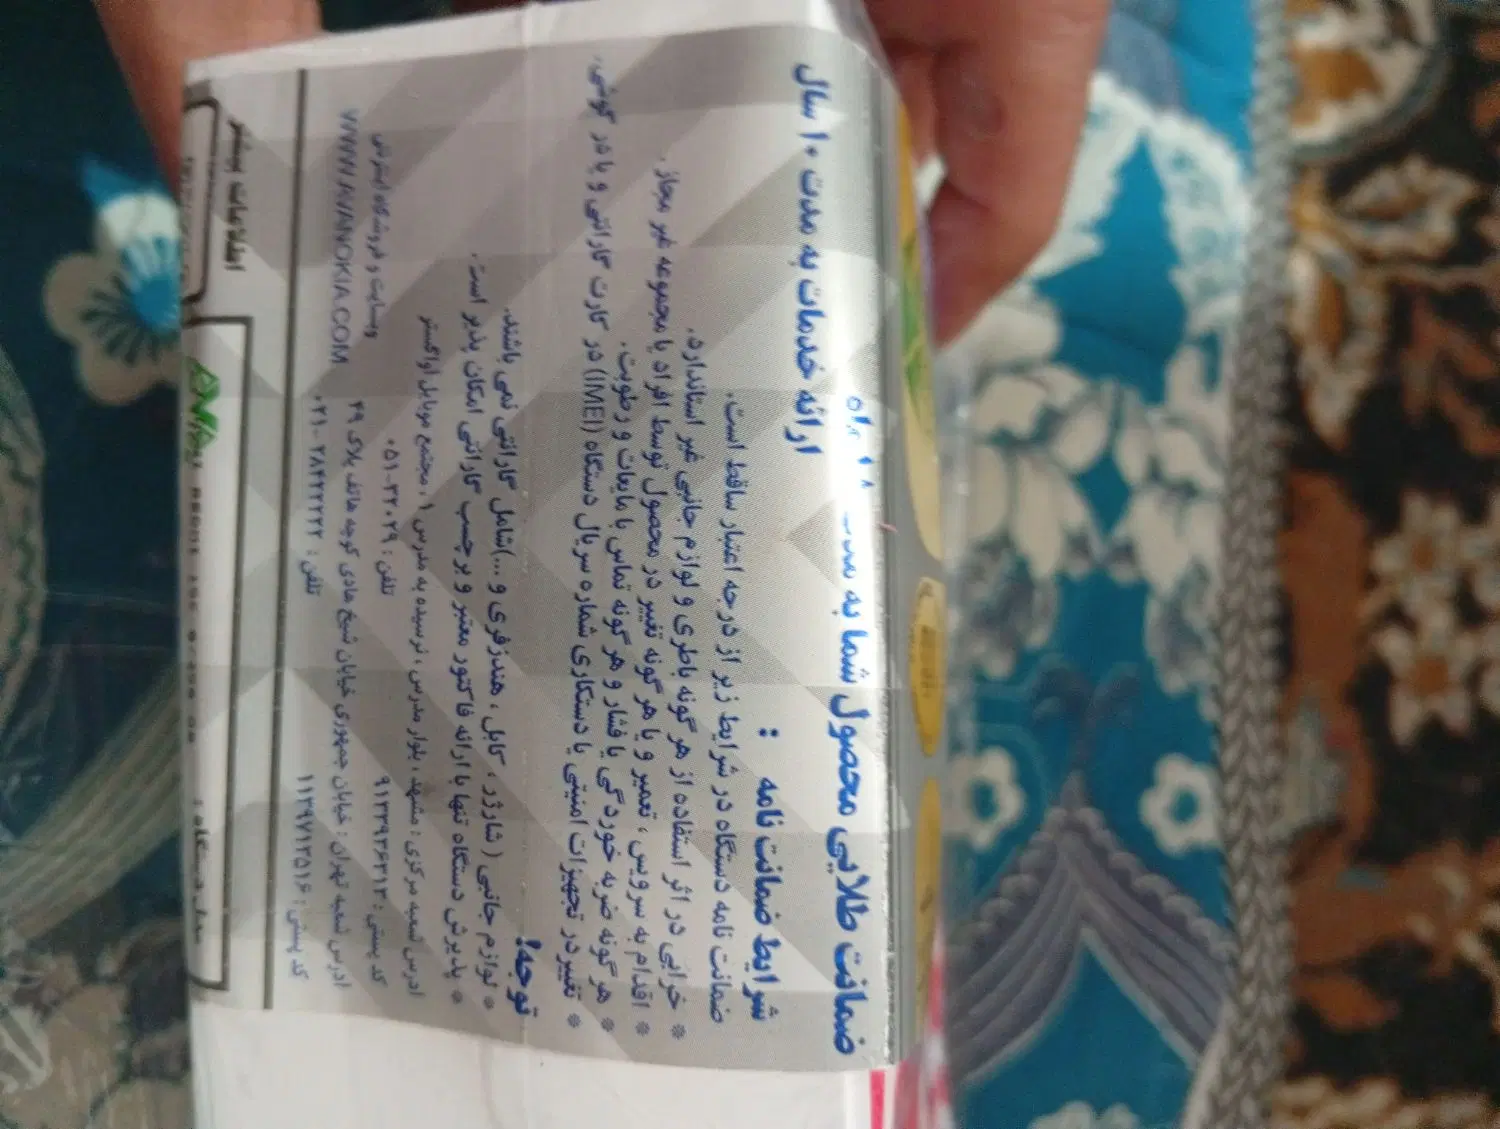 ضمانت طلایی محصول شما به مدت ۱۸ ماه
ارائه خدمات به مدت ۱۰ سال
شرایط ضمانت نامه :
ضمانت نامه دستگاه در شرایط زیر از درجه اعتبار ساقط است.
* خرابی در اثر استفاده از هر گونه باطری و لوازم جانبی غیر استاندارد.
* اقدام به سرویس، تعمیر و یا هر گونه تغییر در محصول توسط افراد یا مجموعه غیر مجاز.
* هر گونه ضربه خوردگی یا فشار و هر گونه تماس با مایعات و رطوبت.
* تغییر در تجهیزات امنیتی یا دستکاری شماره سریال دستگاه (IMEI) در کارت گارانتی و یا در گوشی.
توجه!
* لوازم جانبی (شارژر، کابل، هندزفری و ...) شامل گارانتی نمی باشند.
* پذیرش دستگاه تنها با ارائه فاکتور معتبر و برچسب گارانتی امکان پذیر است.
ادرس شعبه مرکزی: مشهد، بلوار مدرس، نرسیده به مدرس ۱، مجتمع موبایل اواگستر
کد پستی: ۹۱۳۳۹۳۶۳۱۳ تلفن: ۳۲۰۲۹-۰۵۱ وبسایت و فروشگاه اینترنتی
ادرس شعبه تهران: خیابان جمهوری خیابان شیخ هادی کوچه هاتف پلاک ۲۹ WWW.AVANOKIA.COM
کد پستی: ۱۱۳۹۷۱۳۵۱۶ تلفن: ۲۸۴۲۲۲۲۲-۰۲۱
اطلاعات بیشتر
مدل دستگاه :